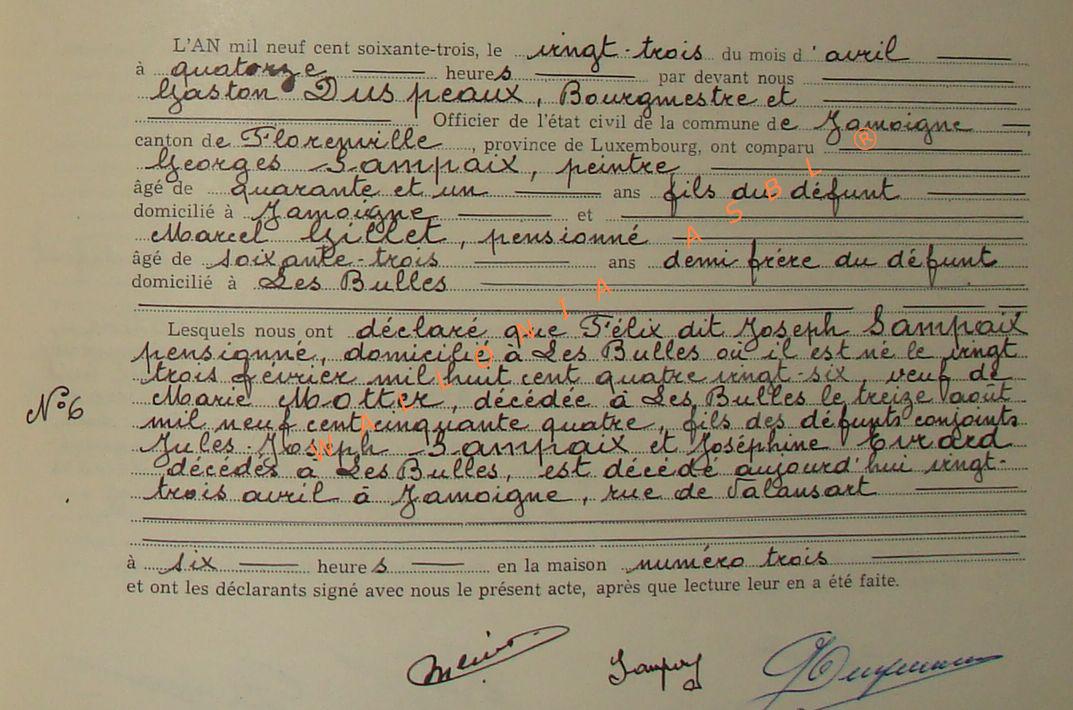 L'AN mil neuf cent soixante-trois, le vingt-trois du mois d'avril
à quatorze heures par devant nous
Gaston Duspeaux, Bourgmestre et
Officier de l'état civil de la commune de Jamoigne
canton de Florenville, province de Luxembourg, ont comparu
Georges Sampaix, peintre
âgé de quarante et un ans fils du défunt
domicilié à Jamoigne et
Marcel Gillet, pensionné
âgé de soixante-trois ans demi frére du défunt
domicilié à Les Bulles
Lesquels nous ont déclaré que Félix dit Joseph Sampaix
pensionné, domicilié à Les Bulles où il est né le vingt
trois février mil huit cent quatre vingt-six, veuf de
Marie Motter, décédée à Les Bulles le treize août
N°6
mil neuf cent cinquante quatre, fils des défunts conjoints
Jules-Joseph Sampaix et Joséphine Evrard
décédés à Les Bulles, est décédé aujourd'hui vingt-
trois avril à Jamoigne, rue de Valansart
à six heures en la maison numéro trois
et ont les déclarants signé avec nous le présent acte, après que lecture leur en a été faite.
WALLONIA ASBL ®